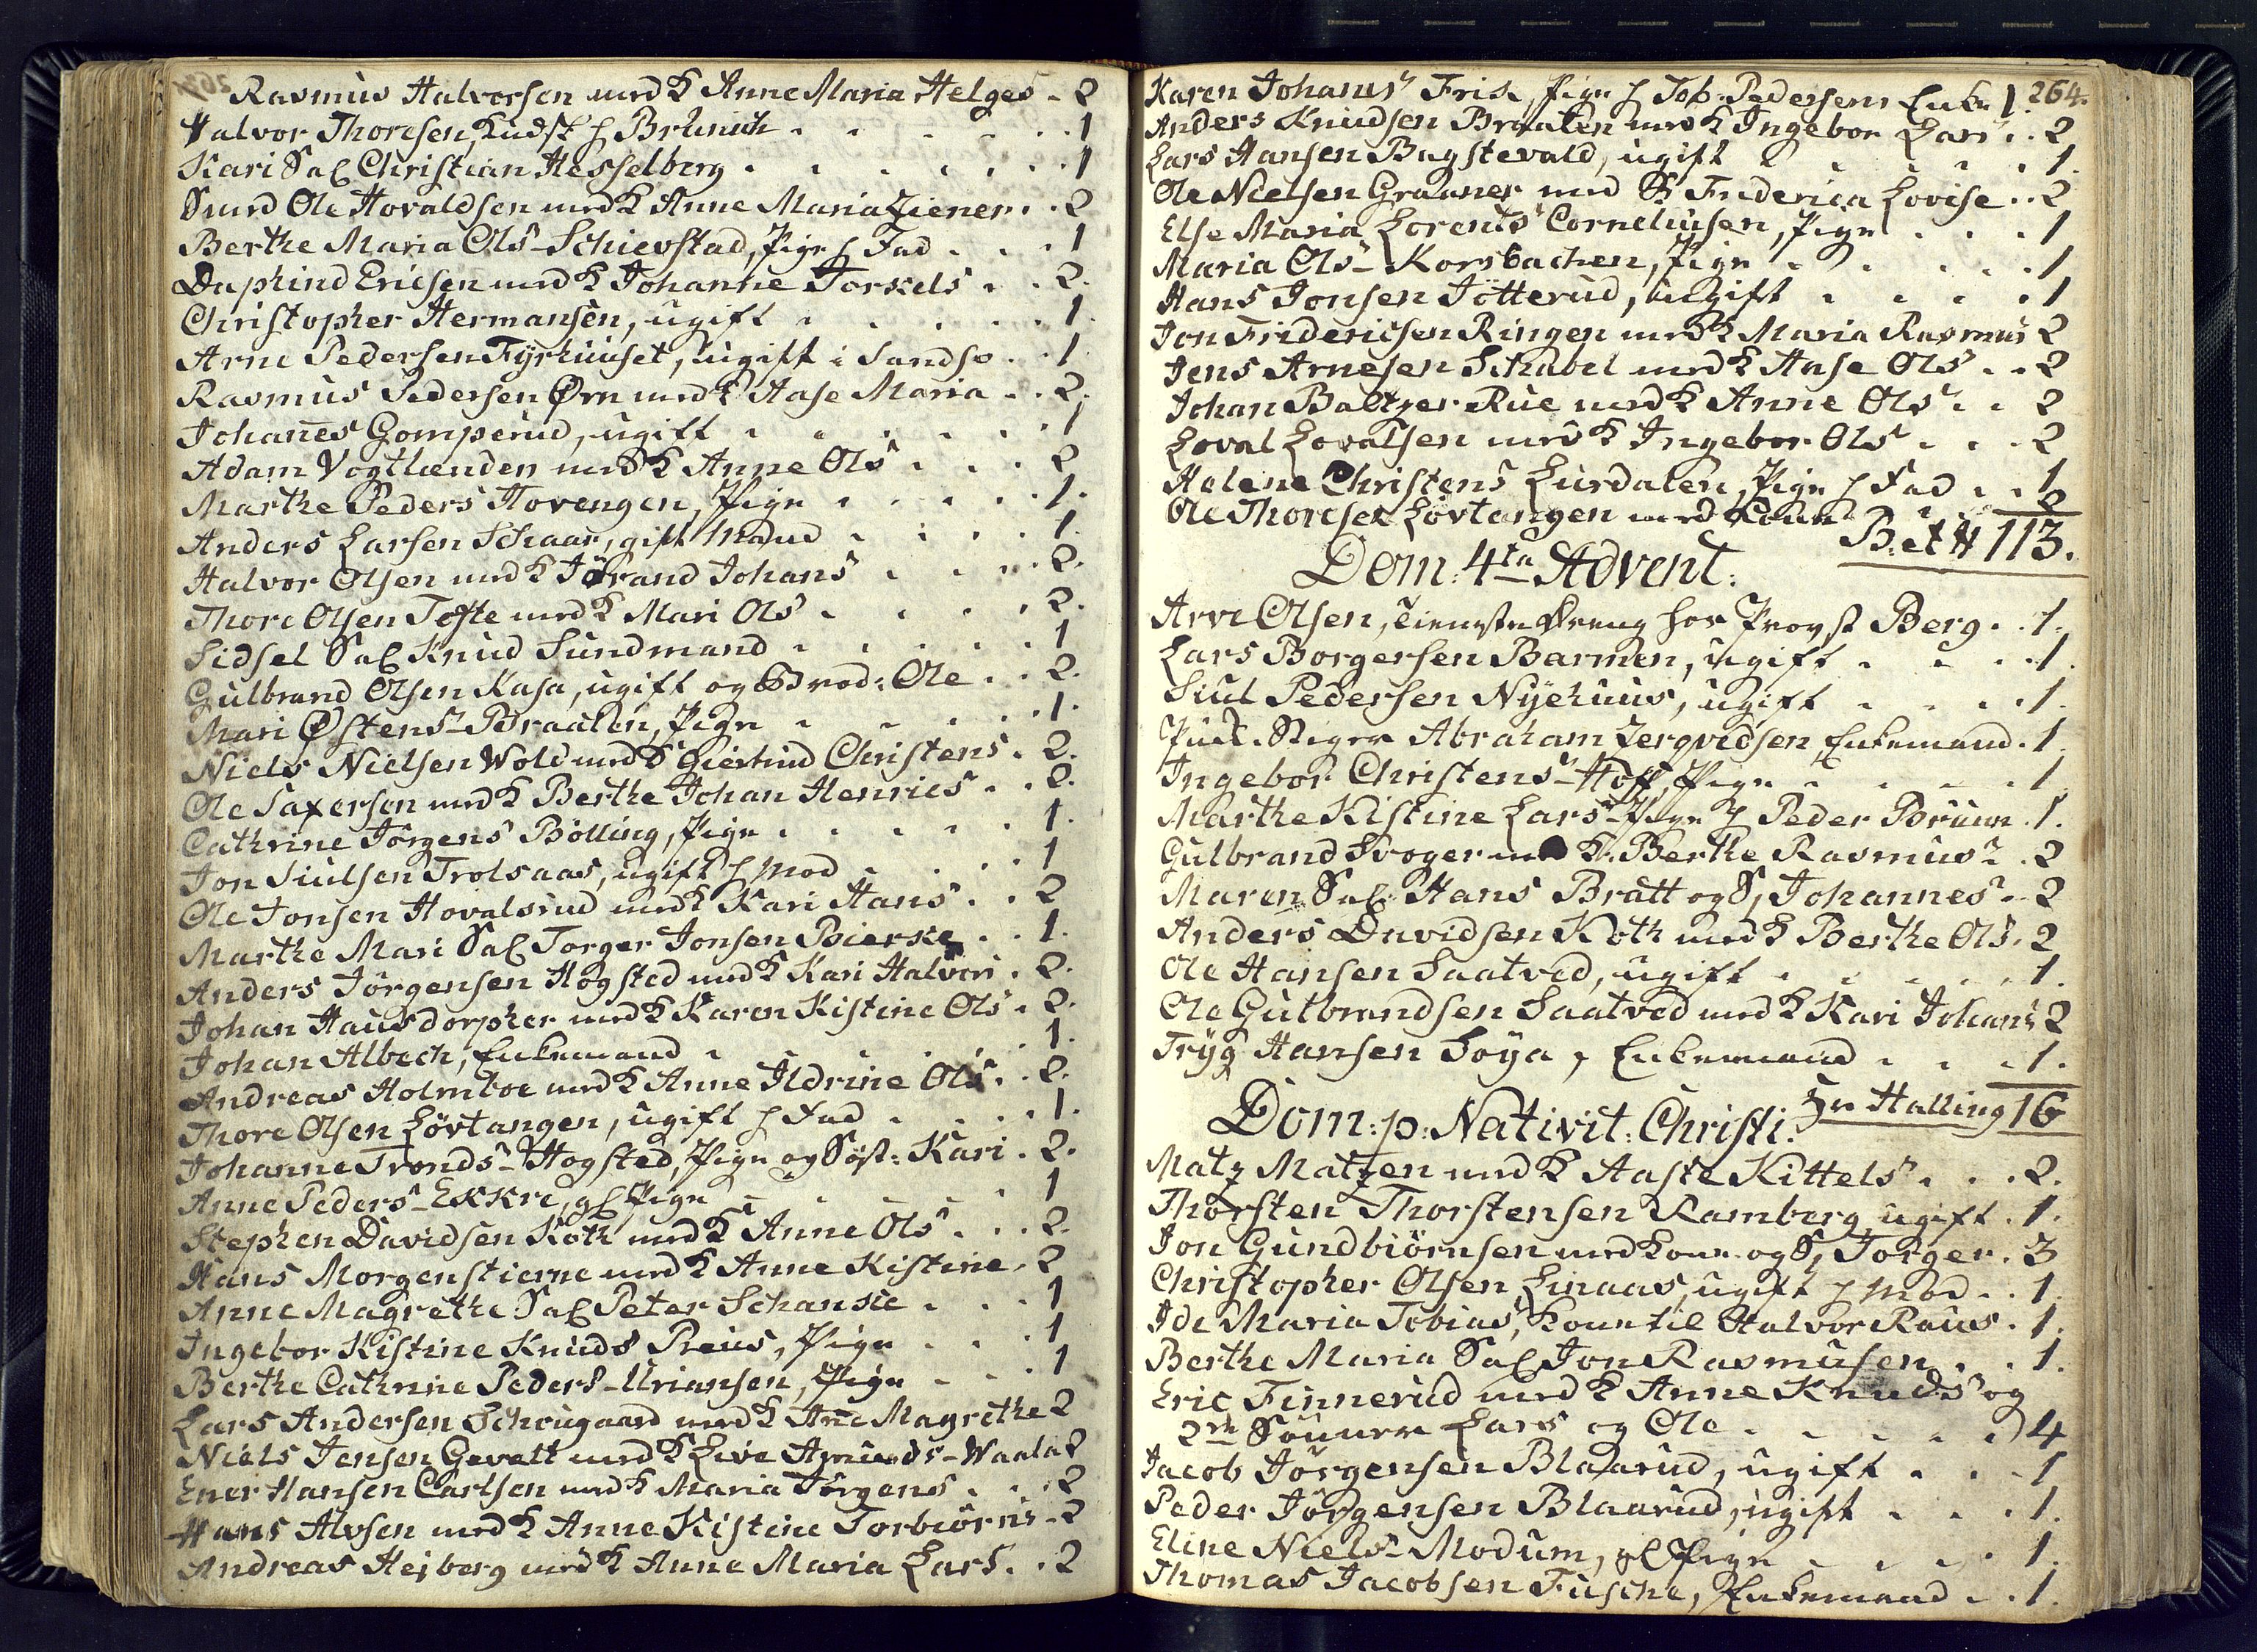 Rasmus Halvorsen med K Anne Maria Helges - 2
Halvor Thoresen, Kudsk h Brünich . . 1
Kari Sal Christian Hesselberg . . 1
Smed Ole Hovaldsen med K Anne Maria Ziener . . 2
Berthe Maria Ols - Schievstad, Pige h Fad . . 1
Daphind Ericsen med K Johanne Torkels . . 2.
Christopher Hermansen, ugift . . 1.
Arne Pedersen Fyrhuuset, ugift i Sandsv . . 1
Rasmus Pedersen Ørn med K Aase Maria . . 2.
Johanes Gomperud, ugift . . 1
Adam Vogtlænden med K Anne Ols . . 2
Marthe Peders Hovengen, Pige . . 1.
Anders Larsen Schaar, gift Mand . . 1.
Halvor Olsen med K Jørand Johans . . 2.
Thore Olsen Tofte med K Mari Ols . . 2.
Sidsel Sal Knud Sundmand . . 1
Gulbrand Olsen Kasa, ugift og Brod: Ole . . 2.
Mari Østens - Braaten, Pige . . 1.
Niels Nielsen Wold med K Giertrud Christens . 2.
Ole Saxersen med K Berthe Johan Henrics . . 2.
Cathrine Jörgens Bölling, Pige . . 1.
Jon Siulsen Trolsaas, ugift h Mod . . 1
Ole Jonsen Hovalsrud med K Kari Hans . . 2
Marthe Mari Sal Torger Jonsen Bierke . . 1.
Anders Jörgensen Hogsted med K Kari Halvors . 2.
Johan Hausdorpher med K Karen Kistine Ols . 2.
Johan Albech, Enkemand . . 1.
Andreas Holmboe med K Anne Ildrine Ols . . 2.
Thore Olsen Lövtangen, ugift h Fad . . 1.
Johanne Tronds - Hogsted, Pige og Søst: Kari . 2.
Anne Peders - Ekkre, gl Pige . . 1
Stephen Davidsen Koth med K Anne Ols . . 2.
Hans Morgenstierne med K Anne Kistine . 2
Anne Magrethe Sal Peter Schansie . . 1
Ingebor Kistine Knuds Preus, Pige . . 1
Berthe Cathrine Peders - Uriansen, Pige . . 1
Lars Andersen Schougaard med K Ane Magrethe 2
Niels Jensen Gevelt med K Live Amunds - Waala 2
Ener Hansen Carlsen med K Maria Jörgens . . 2
Hans Alvsen med K Anne Kistine Torbiörns - 2
Andreas Heiberg med K Anne Maria Lars . . 2
264.
Karen Johans Frise, Pige h Tob. Pedersens Enke 1.
Anders Knudsen Braaten med K Ingebor Lars . . 2
Lars Hansen Bagstevald, ugift . . 1.
Ole Nielsen Graaner med K Friderica Lovise . . 2
Else Maria Lorents Corneliusen, Pige . . 1
Maria Ols - Korsbachen, Pige . . 1
Hans Jonsen Jötterud, ugift . . 1
Jon Fridericsen Ringen med K Maria Rasmus 2
Jens Arnesen Schabel med K Aase Ols . . 2
Johan Baltzer Rue med K Anne Ols . . 2
Loval Lovalsen med K Ingebor Ols . . 2
Helene Christens Lurdalen, Pige h Fad . . 1
Ole Thoresen Lövtangen med Kone . . 2
B. et H 113.
Dom: 4ta Advent:
Arve Olsen, tieneste Dreng hos Provst Berg . . 1.
Lars Borgersen Barmen, ugift . . 1.
Siul Pedersen Nyehuus, ugift . . 1.
Puch-Stiger Abraham Jergvedsen Enkemand . 1.
Ingebor Christens - Hoff, Pige . . 1.
Marthe Kistine Lars - Pige h Peder Bruun . 1.
Gulbrand Svoger med K. Berthe Rasmus . 2
Maren Sal: Hans Bratt og S, Johannes . 2
Anders Davidsen Koth med K Berthe Ols . 2
Ole Hansen Saatved, ugift . . 1.
Ole Gulbrandsen Saatved med K Kari Johans 2
Tryg Hansen Soya, Enkemand . . 1.
Hr Halling 16
Dom: p: Nativit: Christi.
Matz Matzen med K Aaste Kittels . . 2.
Thorsten Thorstensen Ramberg ugift . 1.
Jon Gundbiörnsen med Kone og S, Torger . 3
Christopher Olsen Linaas, ugift h Mod . . 1.
Ide Maria Tobias, Kone til Halvor Raus . 1.
Berthe Maria Sal Jon Rasmusen . . 1.
Eric Finnerud med K Anne Knuds og
2de Sönner Lars og Ole . . 4
Jacob Jörgensen Blaarud, ugift . . 1
Peder Jörgensen Blaarud, ugift . . 1.
Eline Niels - Modum, gl Pige . . 1.
Thomas Jacobsen Fusche, Enkemand . . 1.